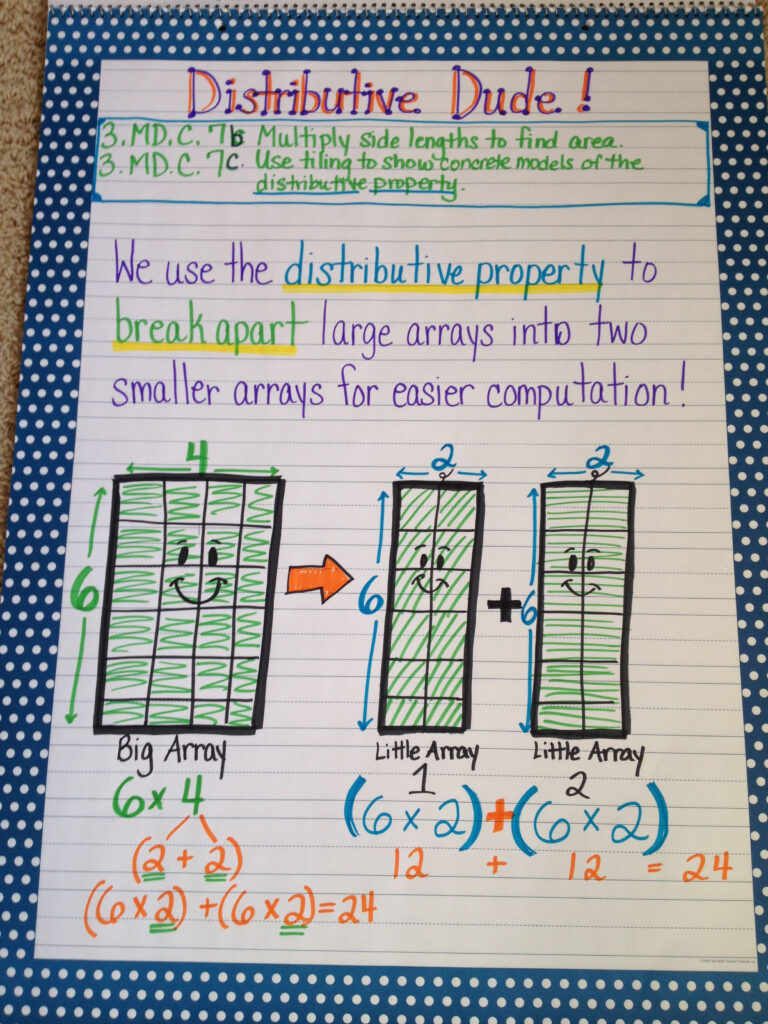 Distributive Dude!
3.MD.C.7b Multiply side lengths to find area.
3.MD.C.7c. Use tiling to show concrete models of the
distributive property.
We use the distributive property to
break apart large arrays into two
smaller arrays for easier computation!
4 2 2
6 6 + 6
Big Array Little Array Little Array
1 2
6 x 4 (6 x 2) + (6 x 2)
(2 + 2) 12 + 12 = 24
(6 x 2) + (6 x 2) = 24